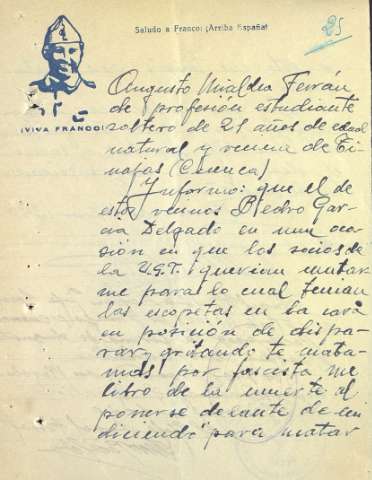 Saludo a Franco: ¡Arriba España!
25
¡VIVA FRANCO!
Augusto Miralda Ferrán
de profesión estudiante
soltero de 21 años de edad
natural y vecino de Ti-
najas (Cuenca)
Informo: que el de
esta vecino Pedro Gar-
cia Delgado en una oca-
sión en que los socios de
la U.G.T. querian matar
me para lo cual tenian
las escopetas en la cara
en posición de dispa-
rar y gritando te mata-
mos por fascista me
libro de la muerte al
ponerse delante de mi
diciendo "para matar